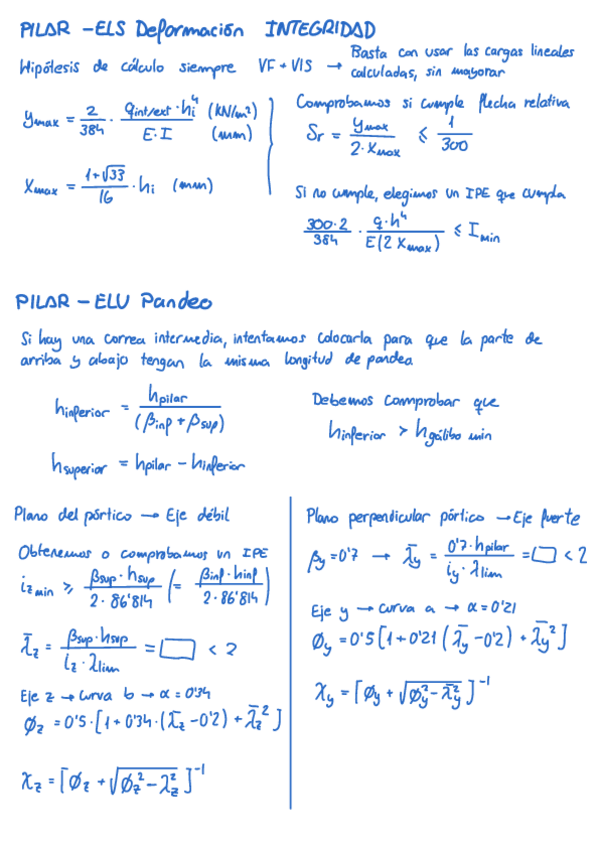 PILAR - ELS Deformación INTEGRIDAD
Hipótesis de cálculo siempre VF + VIS → Basta con usar las cargas lineales
calculadas, sin mayorar
y_max = 2/384 · q_int/ext · h_i^4 / E·I (KN/m²) (mm)
x_max = (1+√33)/16 · h_i (mm)
Comprobamos si cumple flecha relativa
S_r = y_max / 2·x_max ≤ 1/300
Si no cumple, elegimos un IPE que cumpla
300·2/384 · q·h^4 / E(2 x_max) ≤ I_min
PILAR - ELU Pandeo
Si hay una correa intermedia, intentamos colocarla para que la parte de
arriba y abajo tengan la misma longitud de pandeo.
h_inferior = h_pilar / (β_inf + β_sup)
h_superior = h_pilar - h_inferior
Debemos comprobar que
h_inferior > h_gálibo min
Plano del pórtico → Eje débil
Obtenemos o comprobamos un IPE
i_z min ≥ β_sup · h_sup / 2·86'814 (= β_inf · h_inf / 2·86'814)
λ̄_z = β_sup · h_sup / i_z · λ_lim = □ < 2
Eje z → curva b → α = 0'34
Ø_z = 0'5·[1 + 0'34·(λ̄_z - 0'2) + λ̄_z²]
χ_z = [Ø_z + √(Ø_z² - λ̄_z²)]^-1
Plano perpendicular pórtico → Eje fuerte
β_y = 0'7 → λ̄_y = 0'7·h_pilar / i_y · λ_lim = □ < 2
Eje y → curva a → α = 0'21
Ø_y = 0'5[1 + 0'21(λ̄_y - 0'2) + λ̄_y²]
χ_y = [Ø_y + √(Ø_y² - λ̄_y²)]^-1